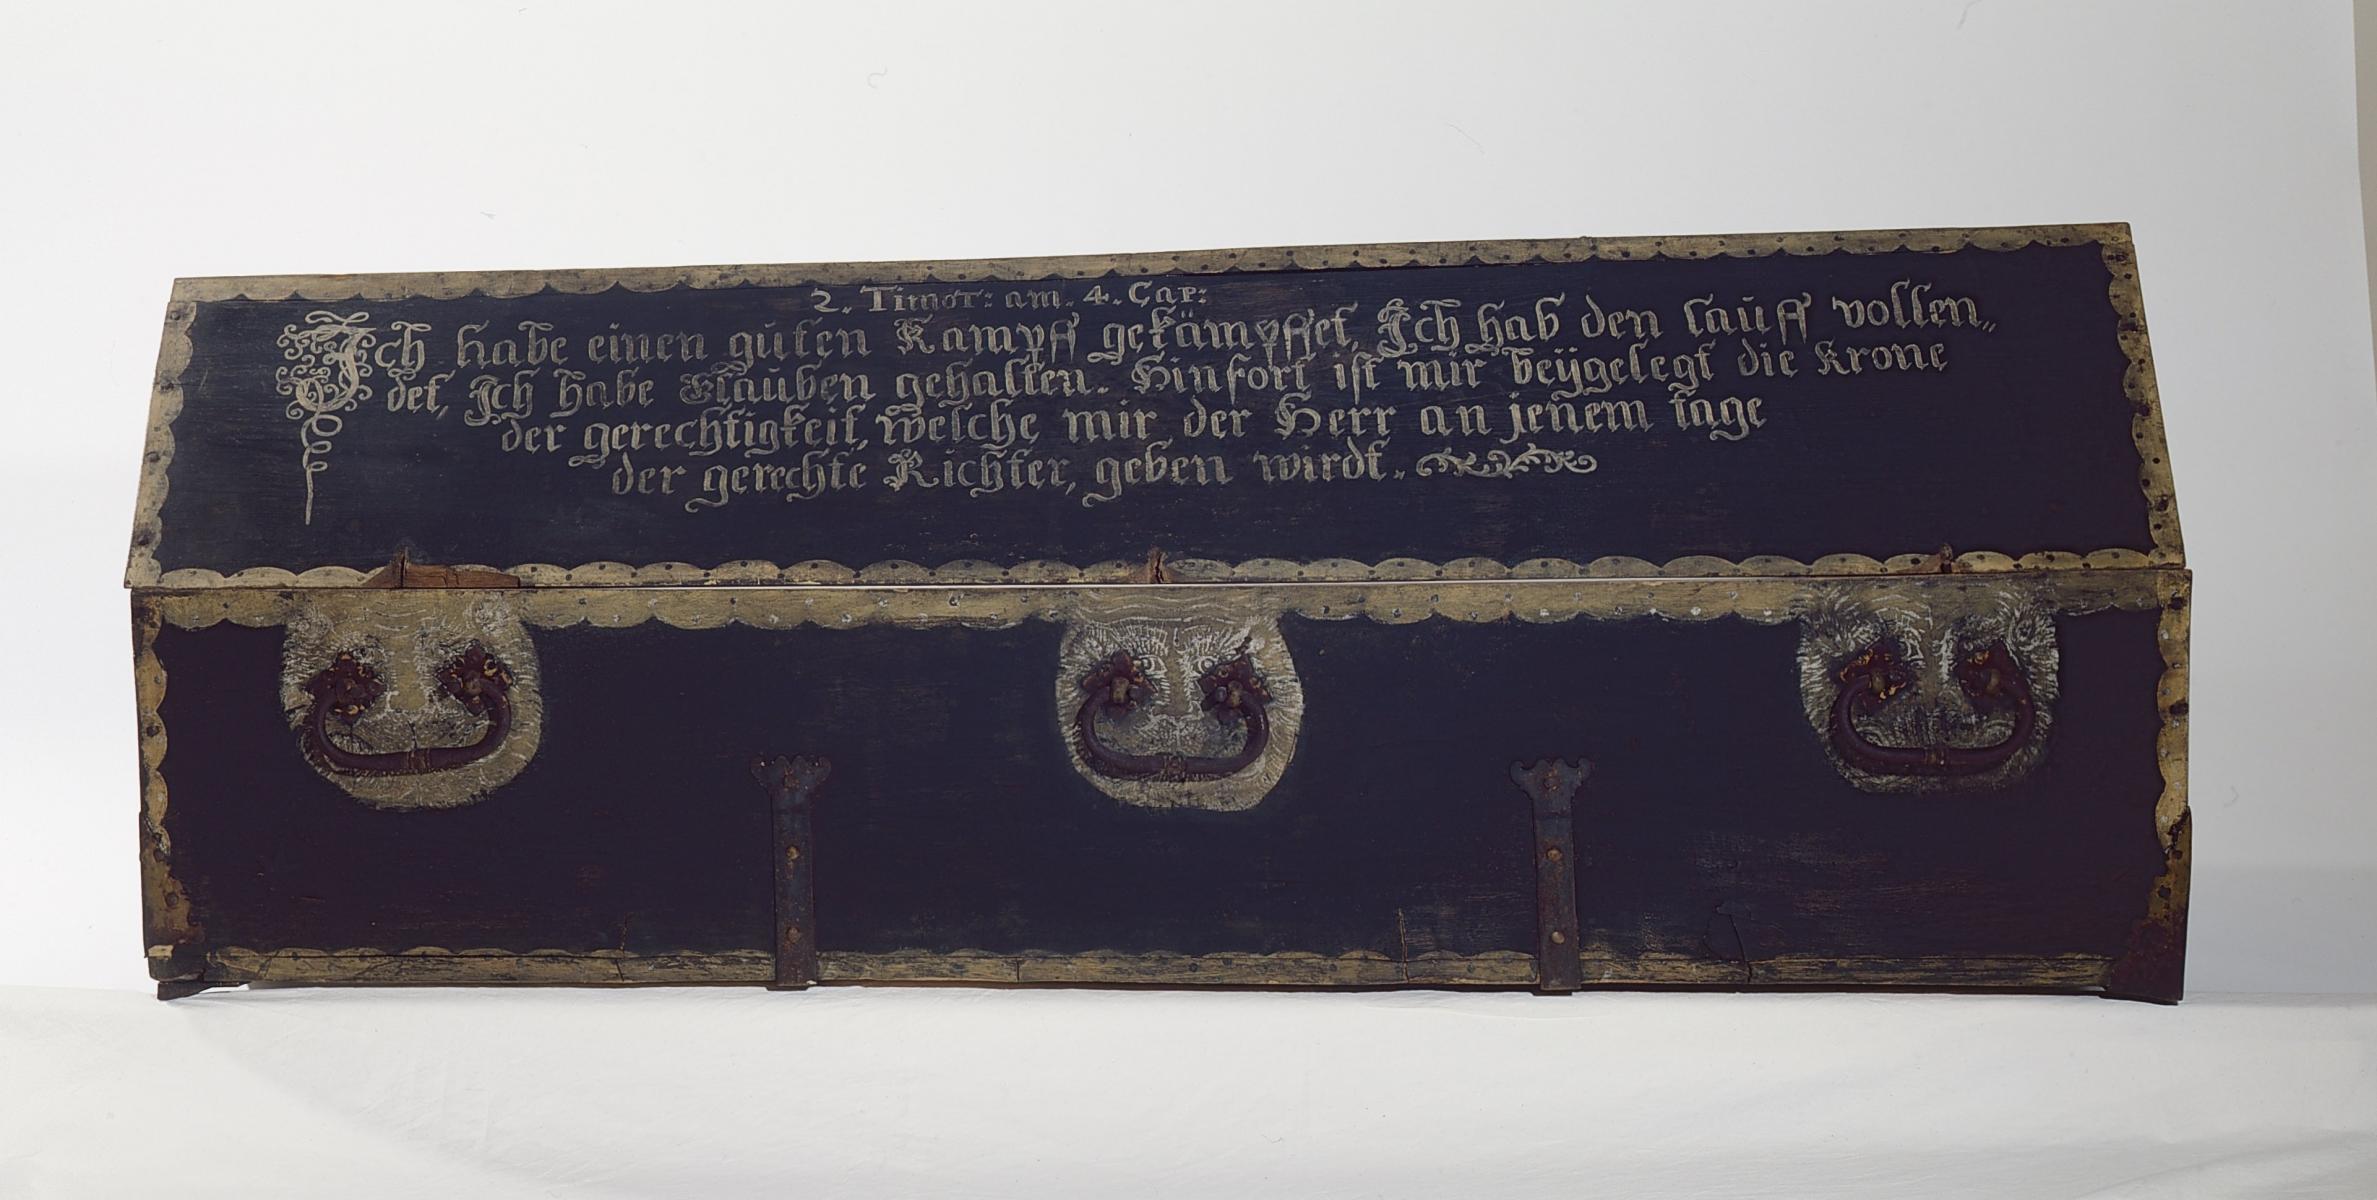 2. Timot: am. 4. Cap:
Ich habe einen guten Kampff gekämpffet, Ich hab den lauff vollen„
det, Ich habe Glauben gehalten. Hinfort ist mir beÿgelegt die Krone
der gerechtigkeit, welche mir der Herr an jenem tage
der gerechte Richter, geben wirdt.